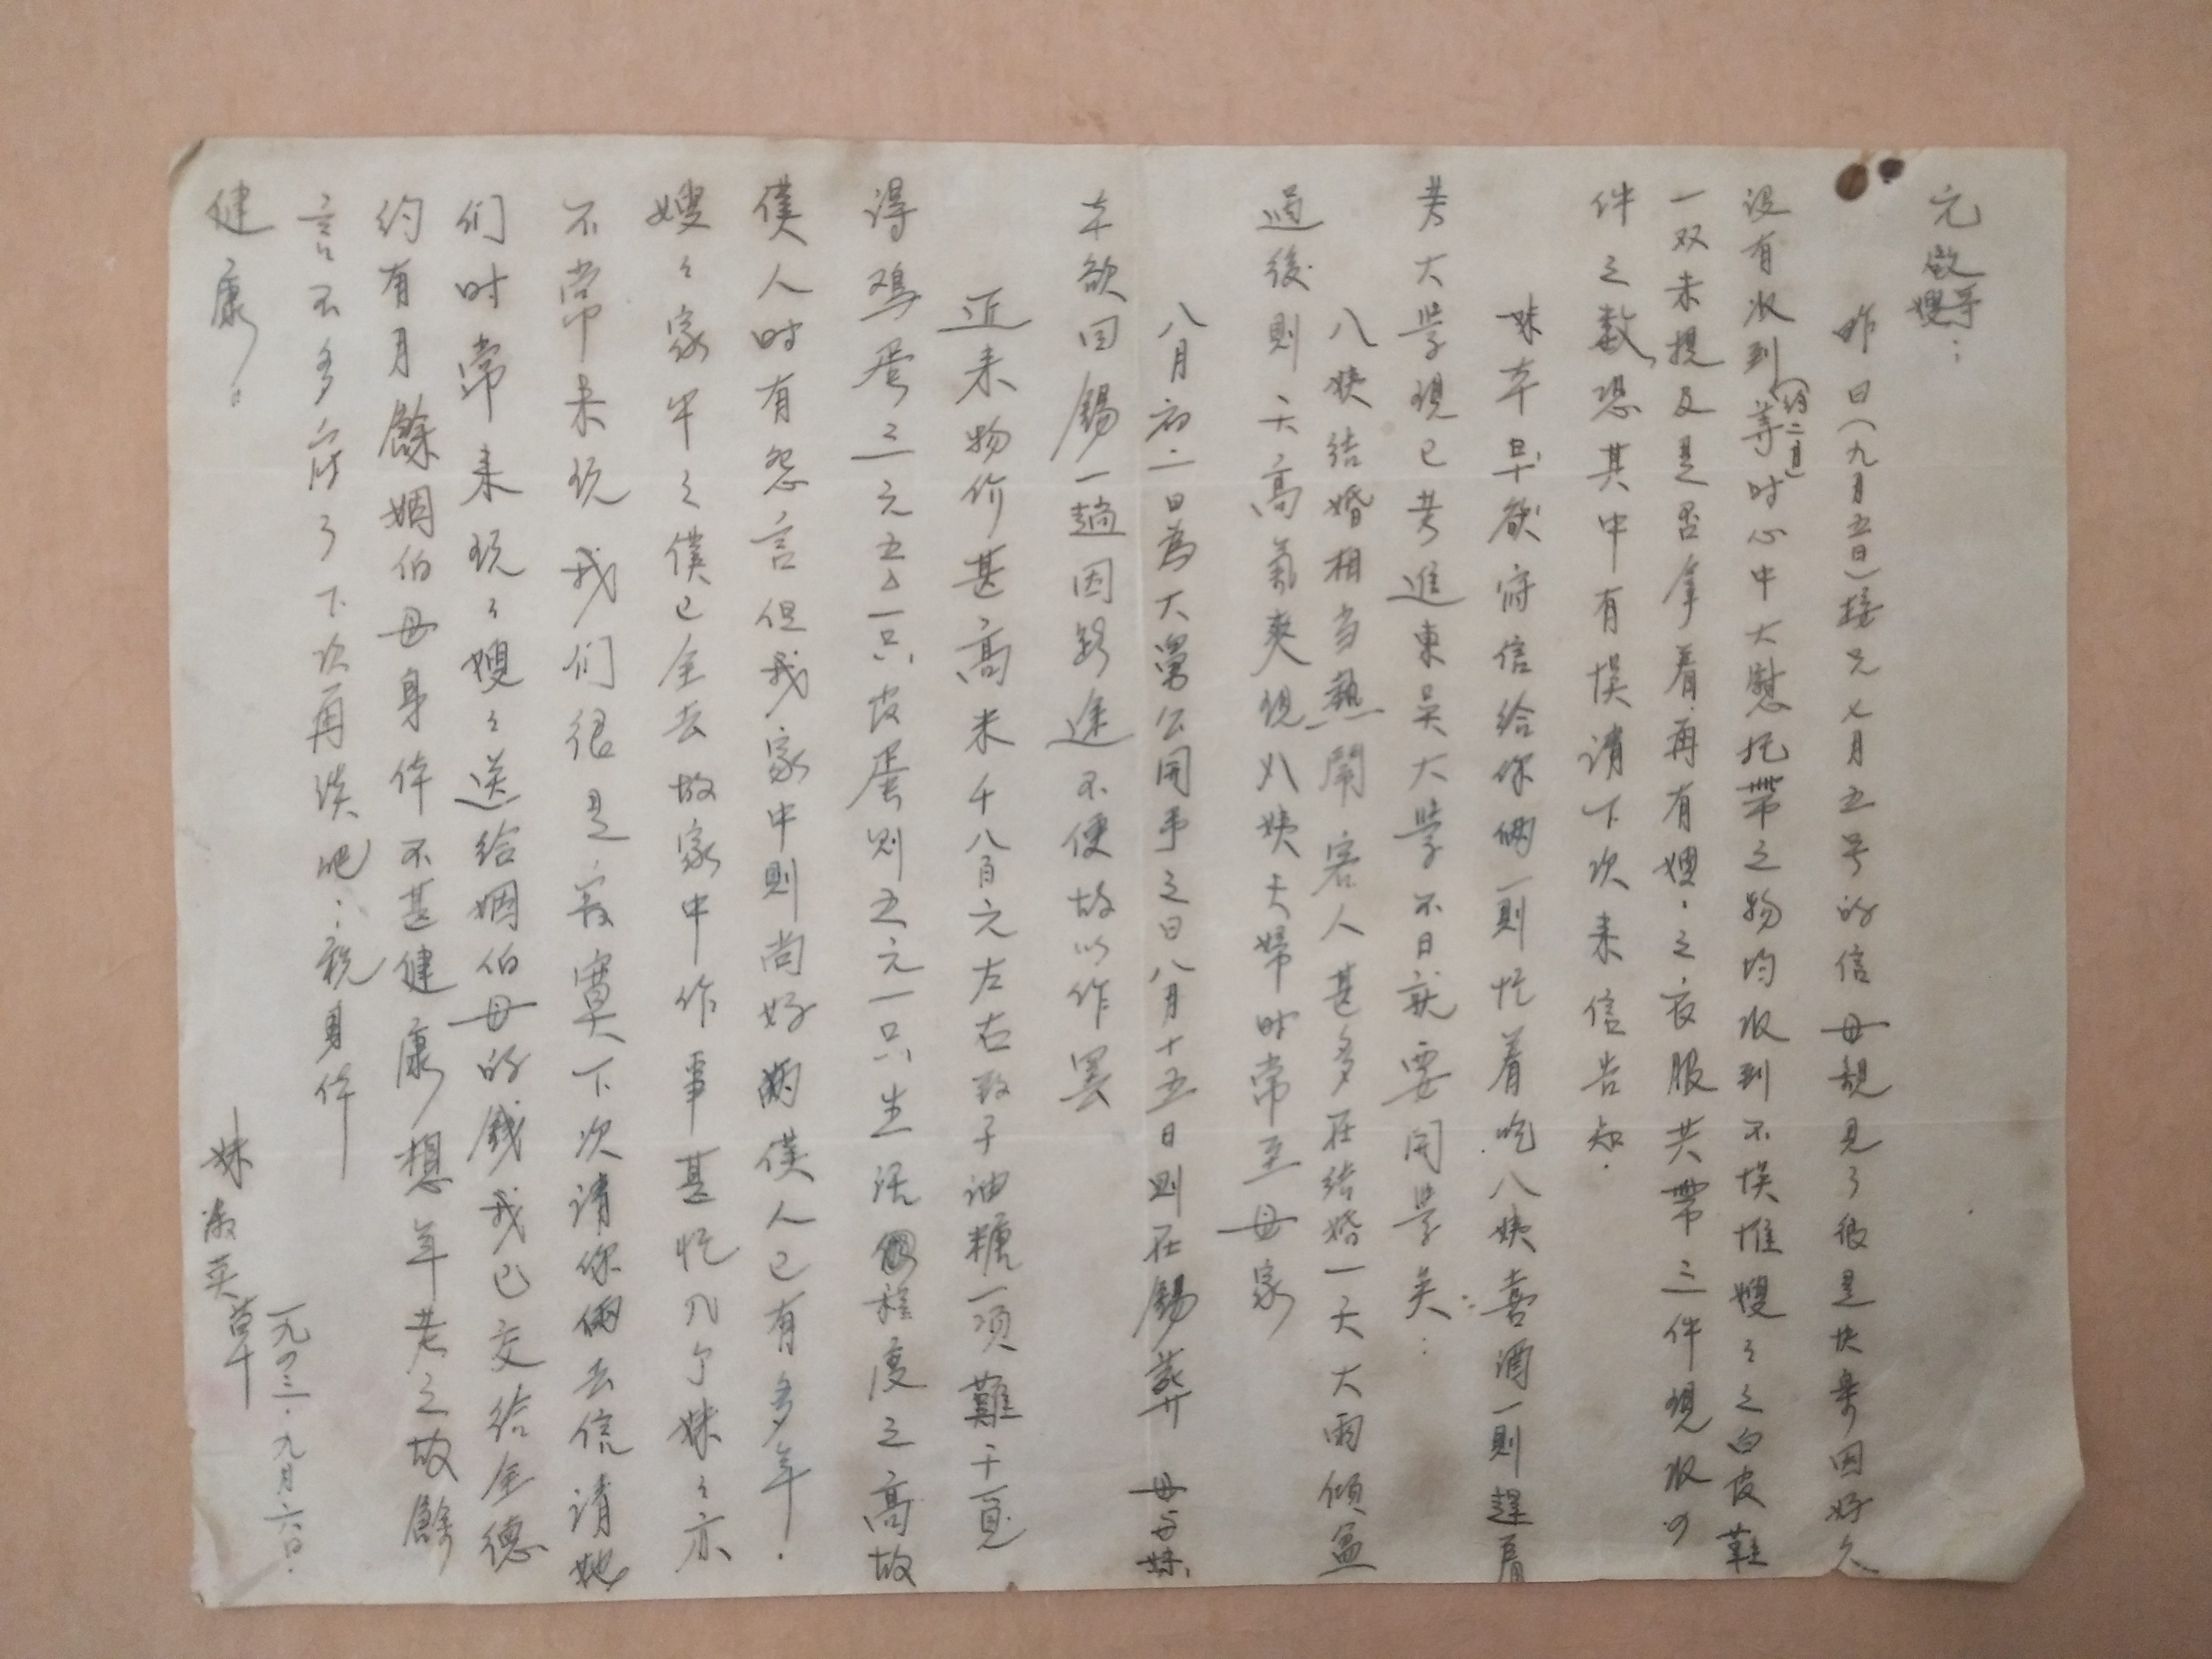 元啟哥嫂：
昨日（九月五日）接兄七月五号的信母親見了很是快樂因好久
没有收到（约二月）等时心中大慰托带之物均收到不悮惟嫂々之白皮鞋
一双未提及是否拿着再有嫂々之衣服共带三件現收四
件之數恐其中有悮请下次来信告知．
妹本早欲寄信给你倆一則忙着吃八姨喜酒一則趕着
考大學現已考進東吴大學不日就要開學矣：
八姨结婚相当熱闹客人甚多在结婚一天大雨倾盆
過後則天高氣爽现八姨夫婦时常至母家
八月初二日為大舅公開弔之日八月十五日則在錫葬母与妹
本欲回錫一趟因路途不便故以作罢
近来物价甚高米千八百元左右致于油糖一項難于一覓
得鸡蛋三元五△一只皮蛋則五元一只生活程度之高故
僕人时有怨言但我家中則尚好兩僕人已有多年．
嫂々家中之僕已全去故家中作事甚忙四了妹々亦
不常来玩我们很是寂寞下次请你倆去信请她
们时常来玩々嫂々送给姻伯母的錢我已交给全德
约有月餘姻伯母身体不甚健康想年老之故餘
言不多寄了下次再谈吧：祝身体
健康。
妹淑英草
一九四三．九月六日．